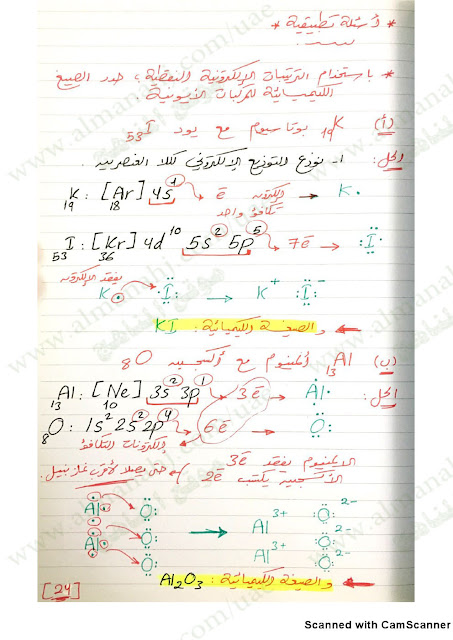 * أسئلة تطبيقية *
* باستخدام الترتيبات الإلكترونية النقطية، حدد الصيغ
الكيميائية للمركبات الأيونية.
(أ) 19K بوتاسيوم مع يود 53I
الحل: 1- نوزع التوزيع الإلكتروني لكلا العنصرين.
19K: [Ar]18 4s1 → e̅ إلكترون → K•
تكافؤ واحد
53I: [Kr]36 4d10 5s2 5p5 → 7e̅ → I
يفقد الإلكترون
K• I → K+ I-
والصيغة الكيميائية: KI
(ب) 13Al ألمنيوم مع أكسجين 8O
الحل:
13Al: [Ne]10 3s2 3p1 → 3e̅ → Al
8O: 1s2 2s2 2p4 → 6e̅ → O
إلكترونات التكافؤ
الألمنيوم يفقد 3e̅
الأكسجين يكتسب 2e̅
حتى يصلا لأقرب غاز نبيل.
Al O O2-
Al O → Al3+ O2-
O Al3+ O2-
والصيغة الكيميائية: Al2O3
[24]
www.almanahj.com/uae
موقع المناهج
Scanned with CamScanner